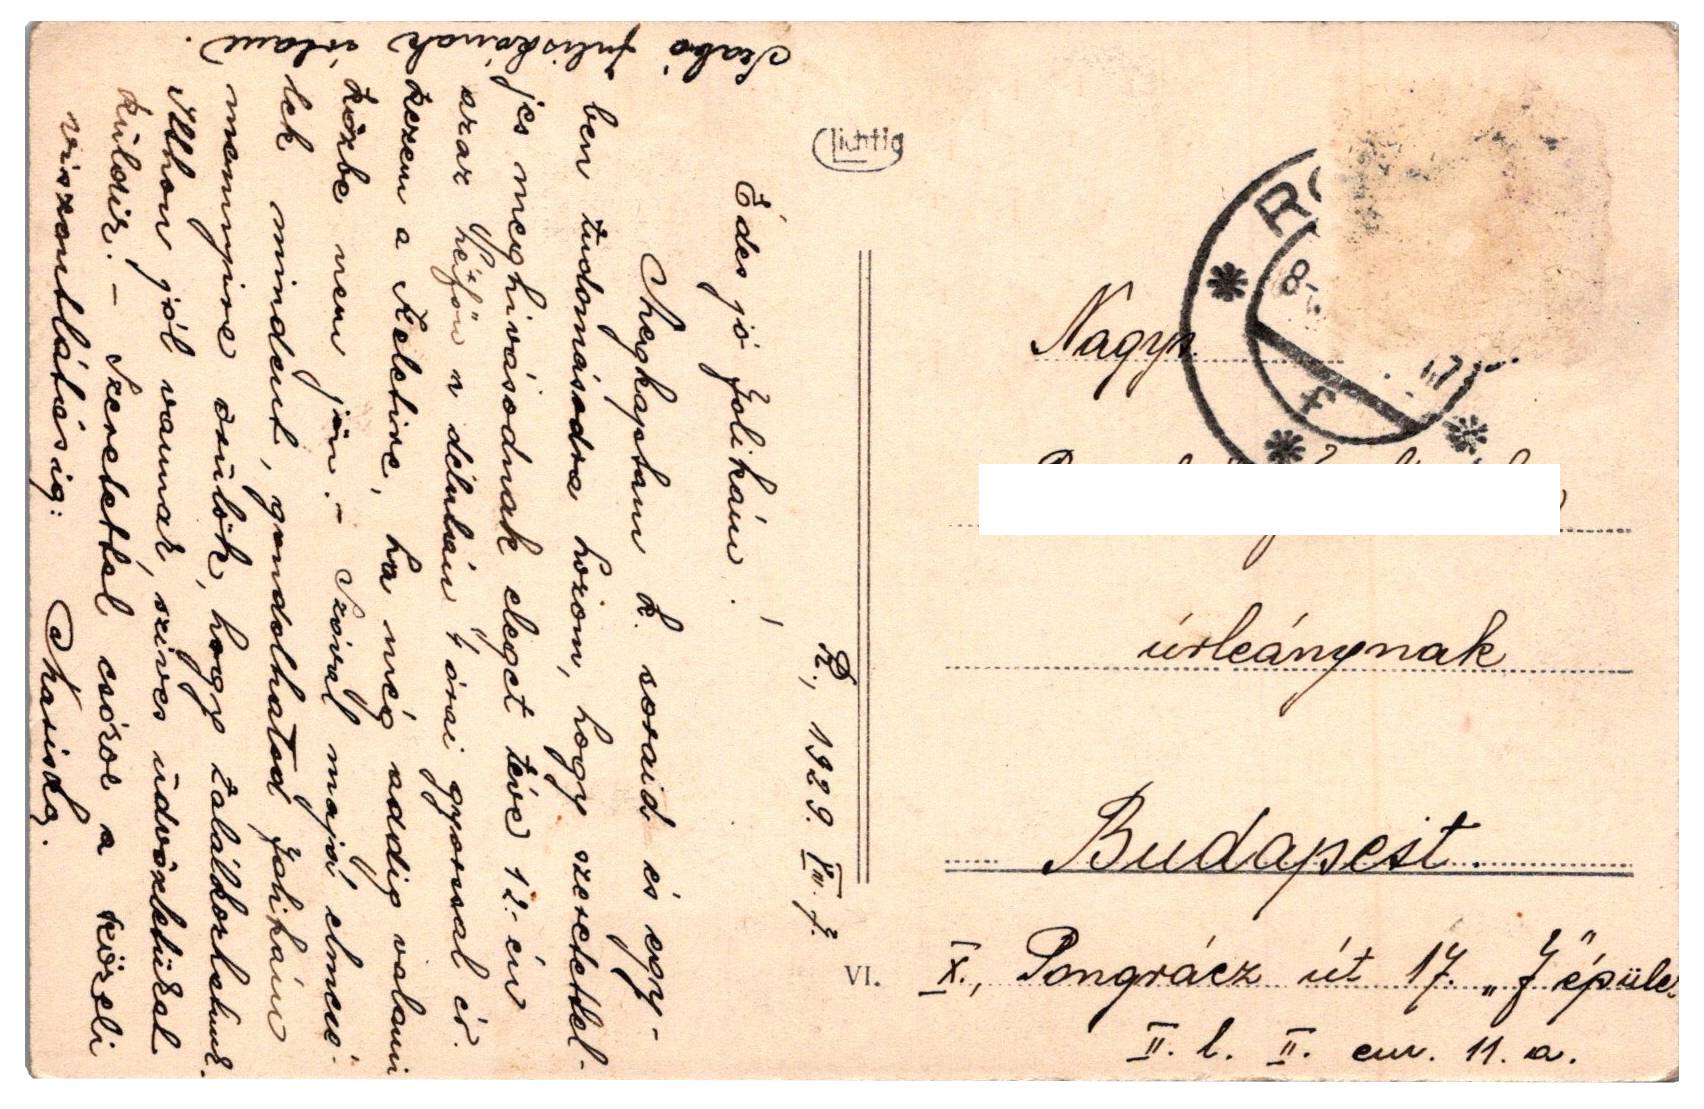 R., 1929. VIII. 7.
Édes jó Jolikám!
Megkaptam k. soraid és egy-
ben tudomásodra hozom, hogy szeretettel-
jes meghivásodnak eleget téve 12.-én
azaz hétfőn a délutáni 4 órai gyorssal ér-
kezem a Keletire, ha még addig valami
közbe nem jön. - Szóval majd elmesé-
lek mindent, gondolhatod Jolikám
mennyire örülök, hogy találkozhatunk.
Itthon jól vannak, szives üdvözletüket
küldik. - Szeretettel csókol a közeli
viszontlátásig: Mariska.
Szabó Juliskának írtam.
Lichtig
RO
8-
F
Nagys.
úrleánynak
Budapest.
VI.
X., Pongrácz út 17. „J" épület
II. l. II. em. 11. a.